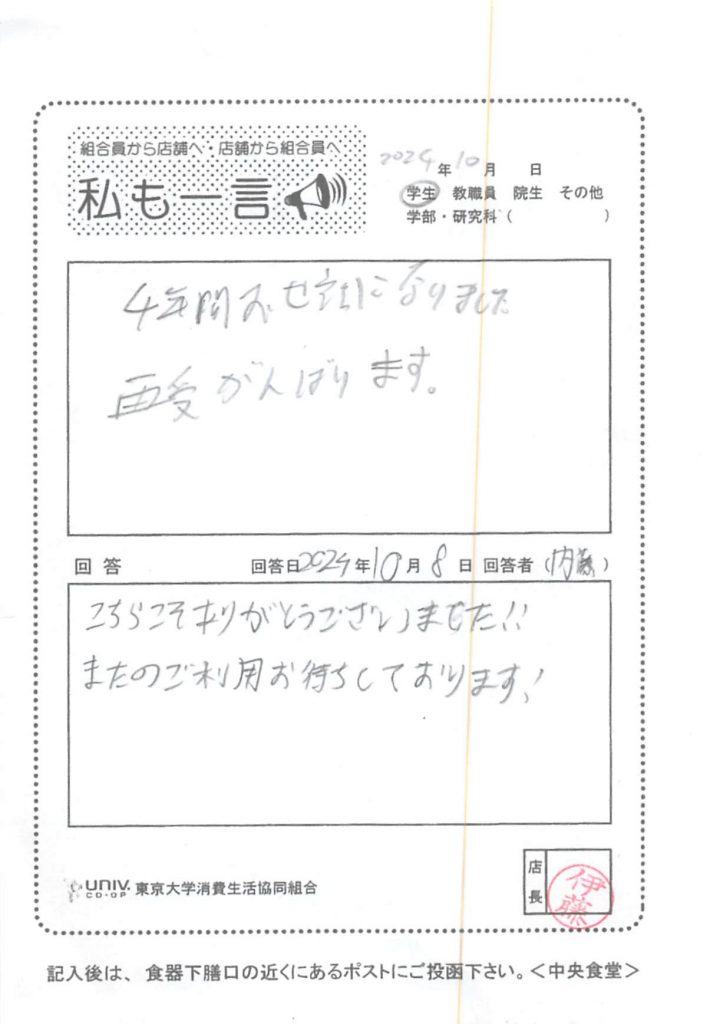 組合員から店舗へ・店舗から組合員へ
私も一言
2024年10月 日
学生 教職員 院生 その他
学部・研究科( )
4年間お世話になりました
再受がんばります。
回答 回答日2024年10月8日 回答者(内藤)
こちらこそありがとうございました!!
またのご利用お待ちしております!
店長
伊藤
UNIV. CO-OP 東京大学消費生活協同組合
記入後は、食器下膳口の近くにあるポストにご投函下さい。<中央食堂>